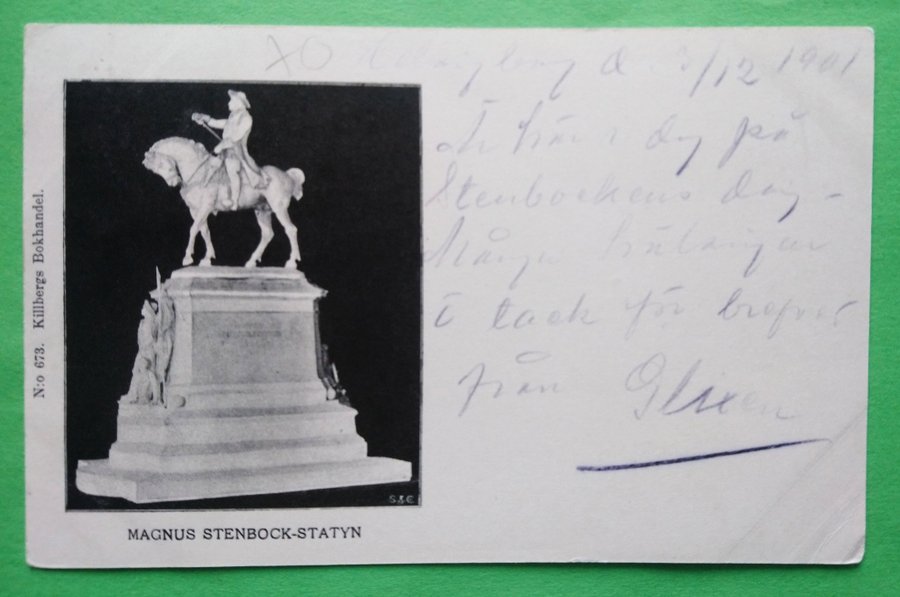 XO Helsingborg d. 3/12 1901
är här i dag på
Stenbockens dag –
Många hälsningar
o tack för brefvet
från Glixen
N:o 673. Killbergs Bokhandel.
S & C
MAGNUS STENBOCK-STATYN